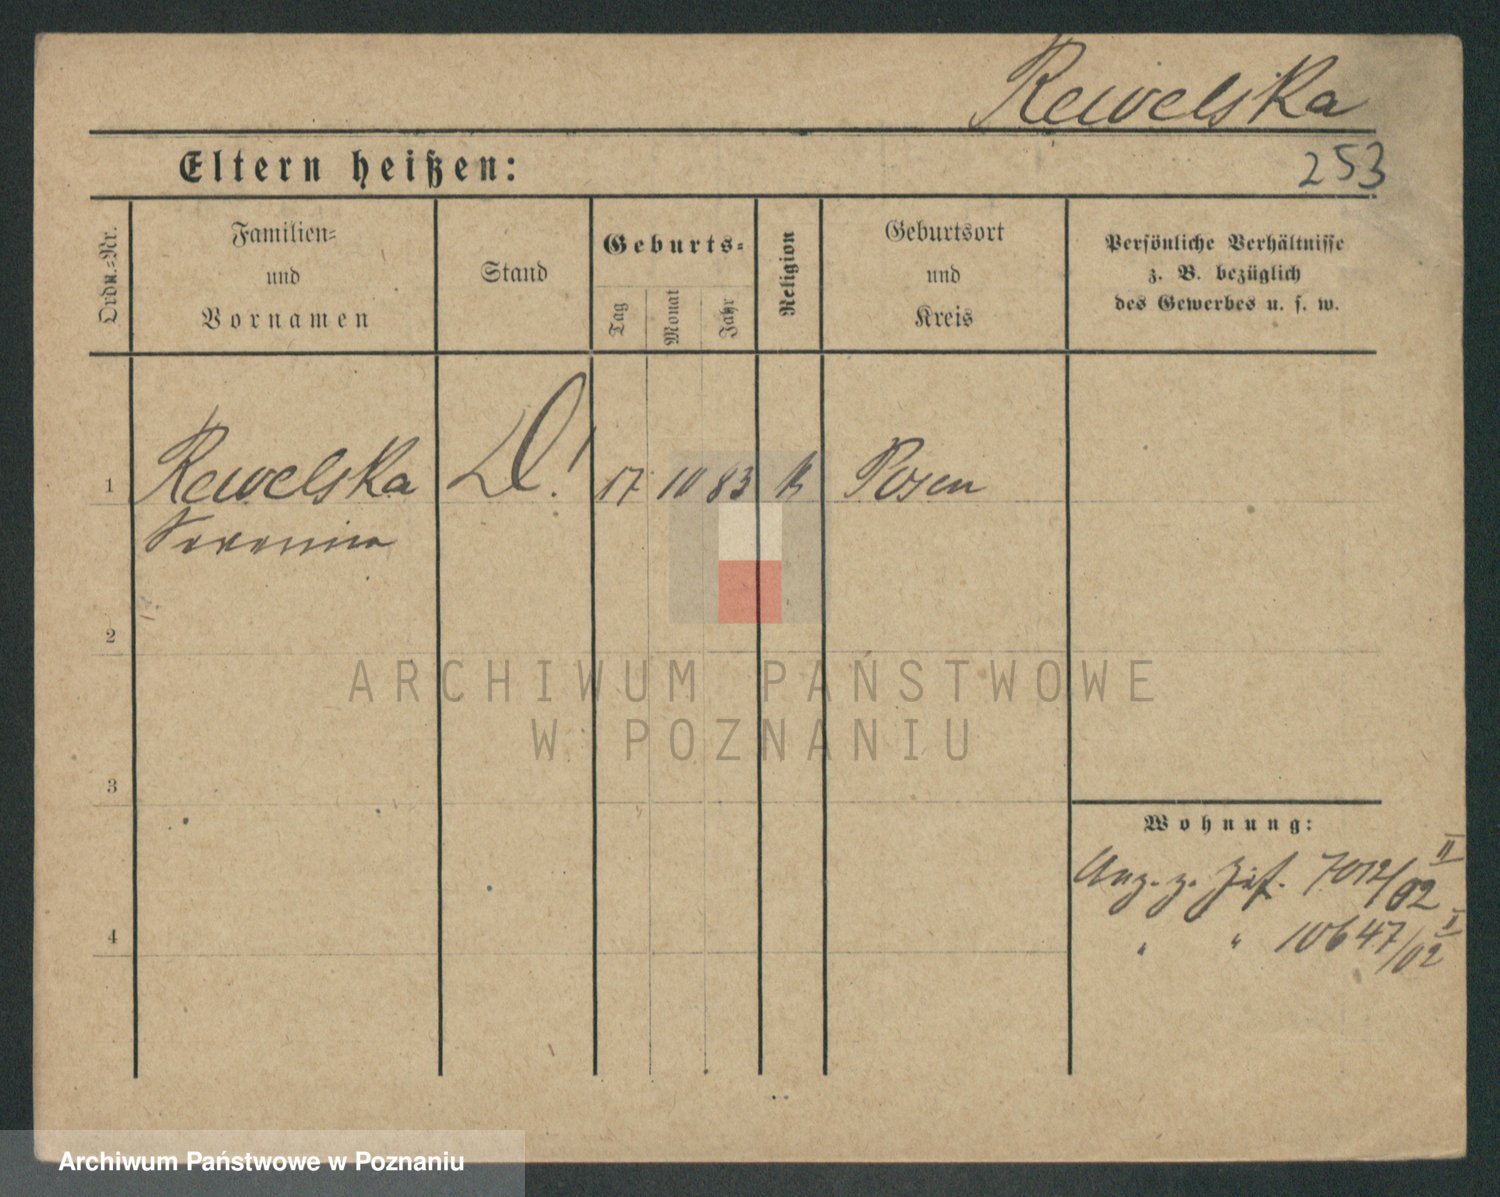 Rewelska
Eltern heißen:
253
Ordn.-Nr.
Familien-
und
Vornamen
Stand
Geburts-
Tag
Monat
Jahr
Religion
Geburtsort
und
Kreis
Persönliche Verhältnisse
z. B. bezüglich
des Gewerbes u. s. w.
1 Rewelska 17 10 83 K Posen
2
ARCHIWUM PAŃSTWOWE
W POZNANIU
3
Wohnung:
7012/02 II
4
" " 10647/02 II
Archiwum Państwowe w Poznaniu